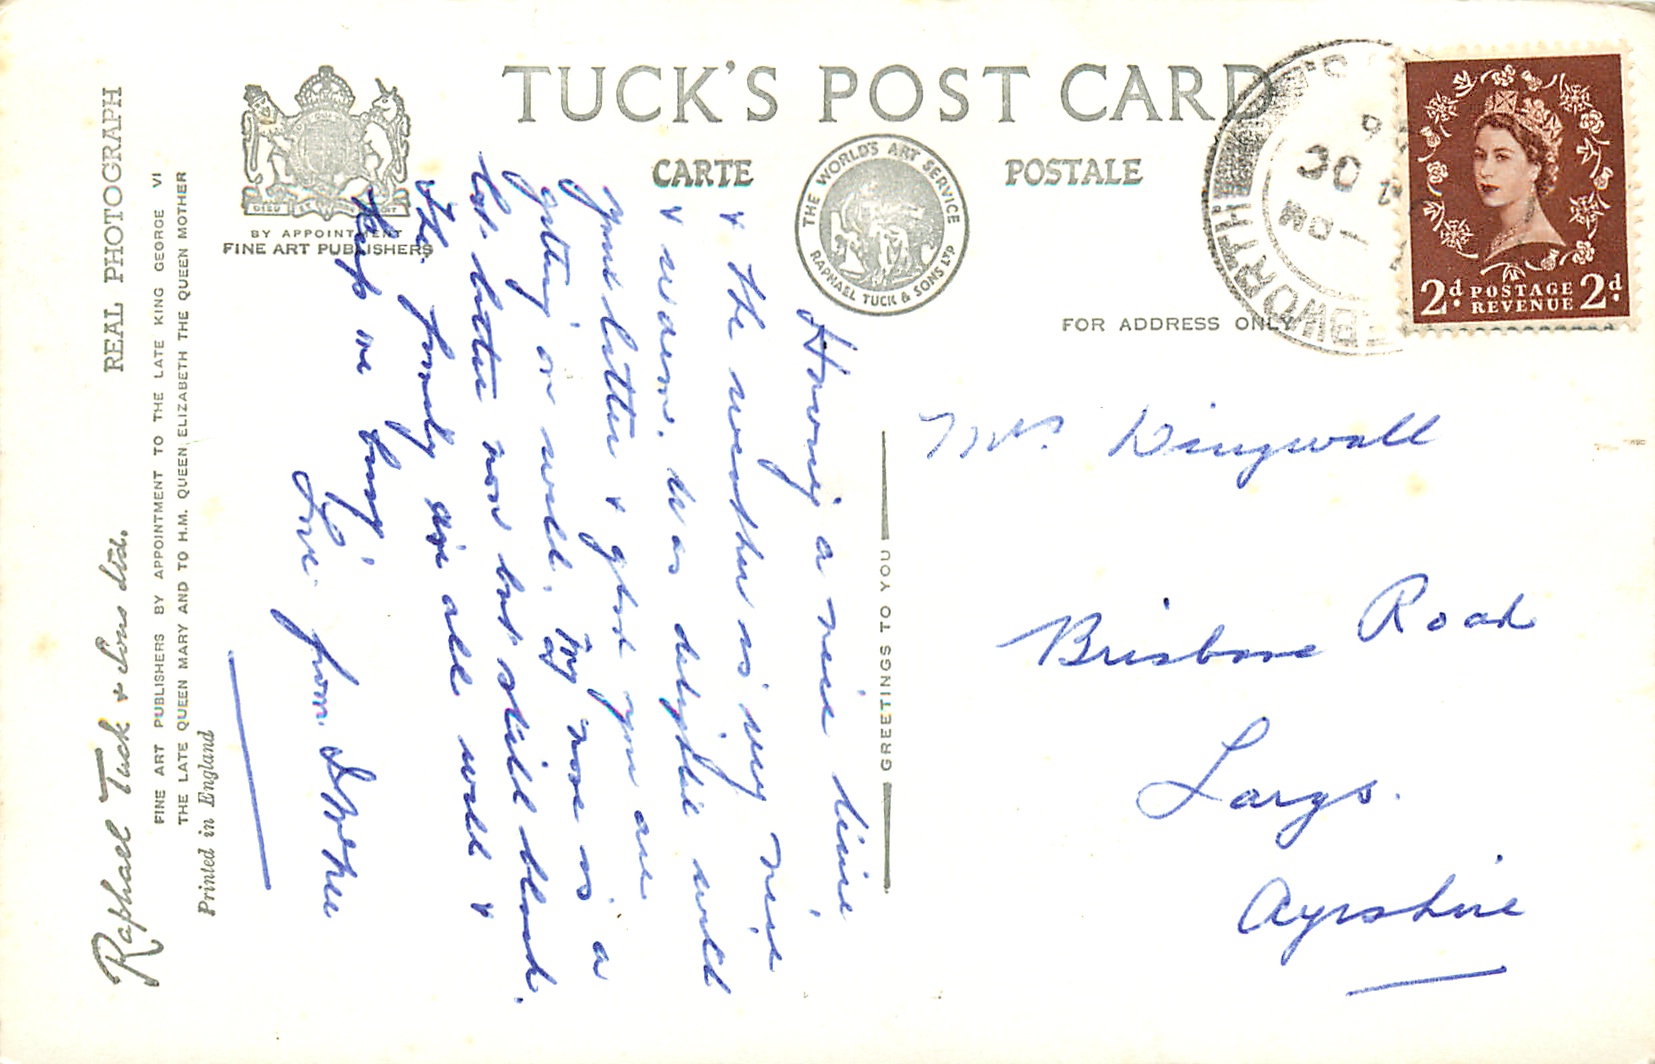 TUCK'S POST CARD
CARTE POSTALE
THE WORLD'S ART SERVICE
RAPHAEL TUCK & SONS LTD
BY APPOINTMENT
FINE ART PUBLISHERS
FOR ADDRESS ONLY
2d. POSTAGE REVENUE 2d.
REAL PHOTOGRAPH
Raphael Tuck & Sons Ltd.
FINE ART PUBLISHERS BY APPOINTMENT TO THE LATE KING GEORGE VI
THE LATE QUEEN MARY AND TO H.M. QUEEN ELIZABETH THE QUEEN MOTHER
Printed in England
GREETINGS TO YOU
Having a nice time,
& the weather is very nice
& warm. was delighted with
your letter & glad you are
getting on well. My nose is a
lot better now but still black.
The family are all well &
keep me busy.
Love from
Mrs. Dingwall
Brisbane Road
Largs.
Ayrshire